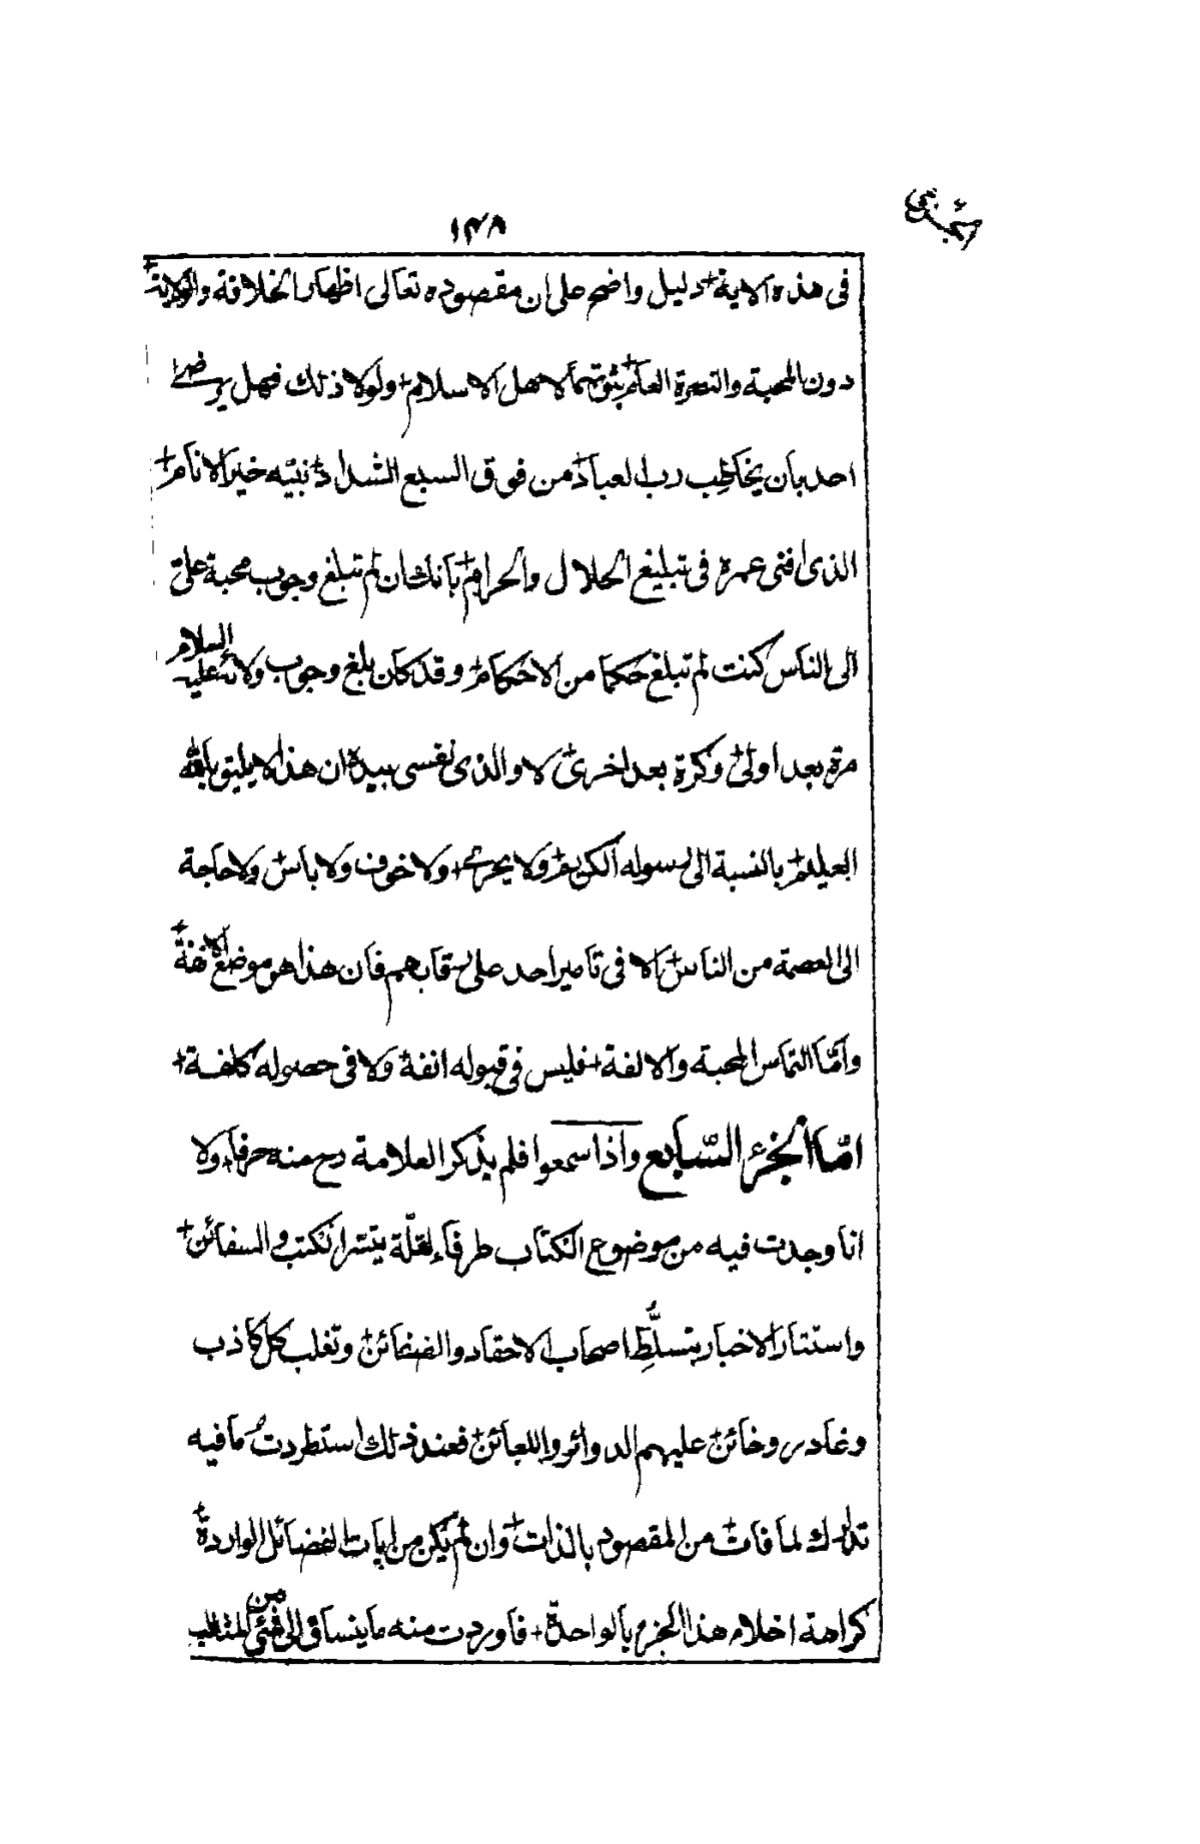 ١٤٨
فى هذه الاية دليل واضح على ان مقصوده تعالى اظهار الخلافة والولاية
دون المحبة والنصرة العام ثبوتهما لاهل الاسلام ولولا ذلك فهل يرضى
احد بان يخاطب رب العباد من فوق السبع الشداد نبيه خير الانام
الذى افنى عمره فى تبليغ الحلال والحرام بانك ان لم تبلغ وجوب محبة على
الى الناس كنت لم تبلغ حكما من الاحكام وقد كان بلغ وجوب ولائه عليه السلام
مرة بعد اولى وكرة بعد اخرى لا والذى نفسى بيده ان هذا لا يليق بالله
العليم بالنسبة الى رسوله الكريم ولا يحرى ولا خوف ولا باس ولا حاجة
الى العصمة من الناس الا فى تامير احد على رقابهم فان هذا هو موضع الانفة
واما التماس المحبة والالفة فليس فى قبوله انفة ولا فى حصوله كلفة
امّا الجزء السّابع واذا سمعوا فلم يذكر العلامة رح منه حرفا ولا
انا وجدت فيه من موضوع الكتاب طرفا لقلّة تيسر الكتب والسفائن
واستتار الاخبار بتسلُّطِ اصحاب الاحقاد والضغائن وتغلب كل كاذب
وغادر وخائن عليهم الدوائر واللعائن فعند ذلك استطردت ما فيه
تدارك لما فات من المقصود بالذات وان لم يكن من ايات الفضائل الواردة
كراهة اخلاء هذا الجزء بالواحدة فاوردت منه ما ينساق الى شئ من المثالب